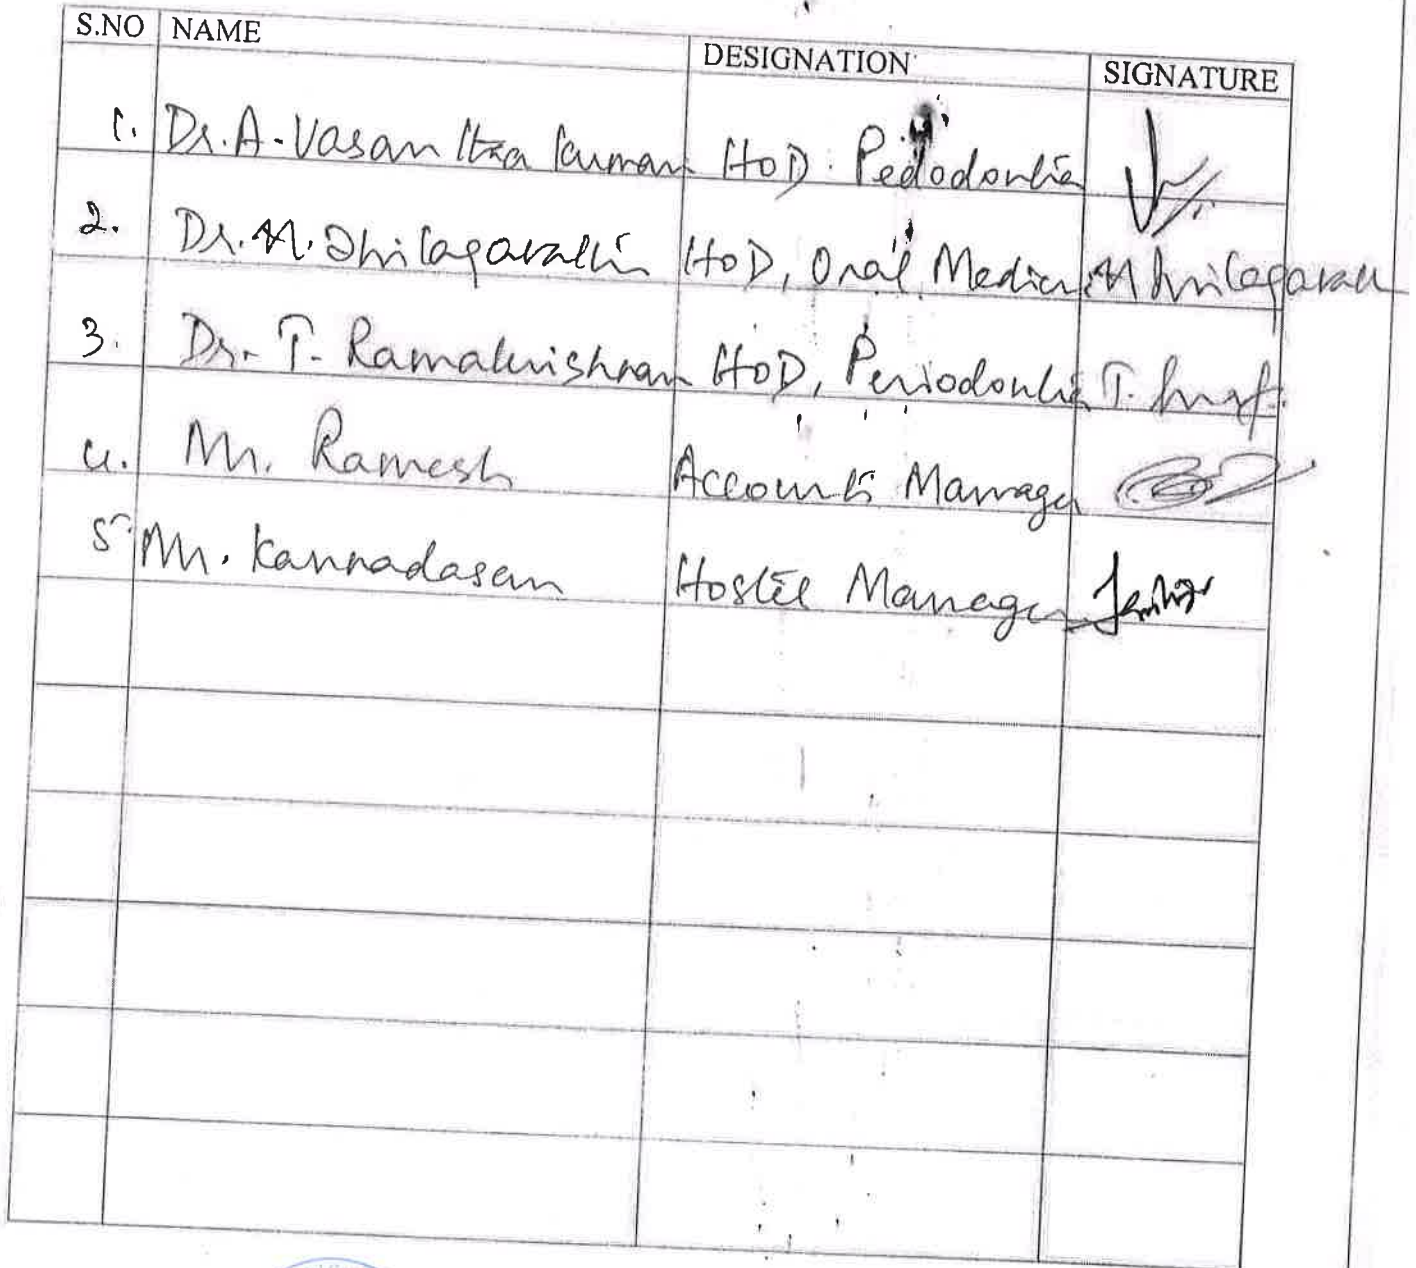 S.NO NAME DESIGNATION SIGNATURE
1. Dr. A. Vasantha Kumari HOD Pedodontia
2. Dr. M. Thilagavathi HOD, Oral Medicin M Thilagavath
3. Dr. T. Ramakrishnan HOD, Periodontia T.
4. Mr. Ramesh Accounts Manager
5. Mr. Kannadasan Hostel Manager